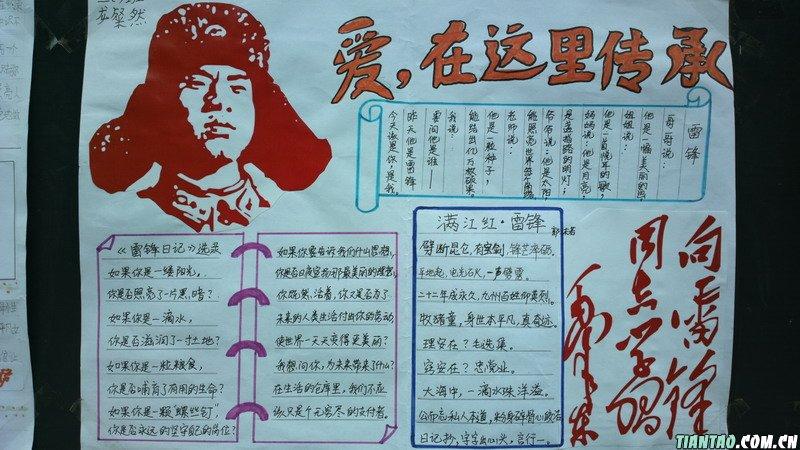 龙粲然
爱，在这里传承
雷锋
哥哥说：
他是一幅美丽的图
姐姐说：
他是一首悦耳的歌，
妈妈说：他是月亮，
是蓝格路的明灯；
爷爷说：他是太阳，
能照亮世界每个角落
老师说：
他是一颗种子，
能结出亿万颗硕果。
我说：
要问他是谁——
昨天他是雷锋
今天该是你，是我。
《雷锋日记》选录
如果你是一缕阳光，
你是否照亮了一片黑暗？
如果你是一滴水，
你是否滋润了一寸土地？
如果你是一粒粮食，
你是否哺育了有用的生命？
如果你是一颗"螺丝钉"
你是否永远的坚守自己的岗位？
如果你要告诉我们什么思想，
你是否日夜宣扬那最美丽的理想
你既然活着，你又是否为了
未来的人类生活付出你的劳动
使世界一天天变得更美丽？
我想问你，为未来带来了什么？
在生活的仓库里，我们不应
该只是个无穷尽的支付者。
满江红·雷锋
郭沫若
劈断昆仑，有宝剑，锋芒淬砺。
平地起，电光石火，一声劈雳。
二十二年成永久，九州百姓仰英烈。
牧猪童，身世本平凡，真奇迹。
理安在？毛选集。
容安在？忠党业。
大海中，一滴水珠洋溢。
公而忘私人本道，粉身碎骨心
日记抄，字字出心头，言行一。
向雷锋
同志学习
毛泽东
TIANTAO.COM.CN